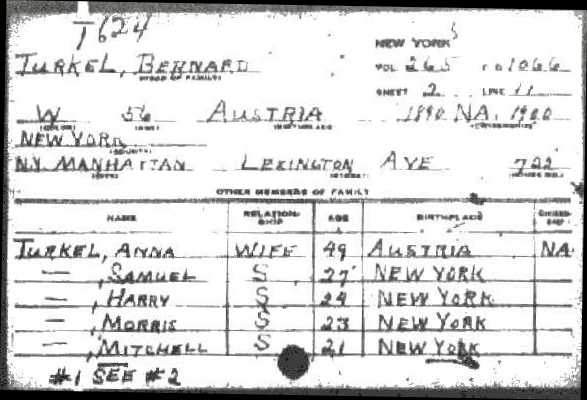 T624
NEW YORK
TURKEL, BERNARD VOL 265 ED 1066
(HEAD OF FAMILY)
SHEET 2 LINE 11
W 56 AUSTRIA 1890 NA. 1900
(COLOR) (AGE) (BIRTHPLACE) (CITIZENSHIP)
NEW YORK
(COUNTY)
N.Y. MANHATTAN LEXINGTON AVE 722
(CITY) (STREET) (HOUSE NO.)
OTHER MEMBERS OF FAMILY
NAME RELATION-SHIP AGE BIRTHPLACE CITIZEN-SHIP
TURKEL, ANNA WIFE 49 AUSTRIA NA
— , SAMUEL S 27 NEW YORK
— , HARRY S 24 NEW YORK
— , MORRIS S 23 NEW YORK
— , MITCHELL S 21 NEW YORK
#1 SEE #2